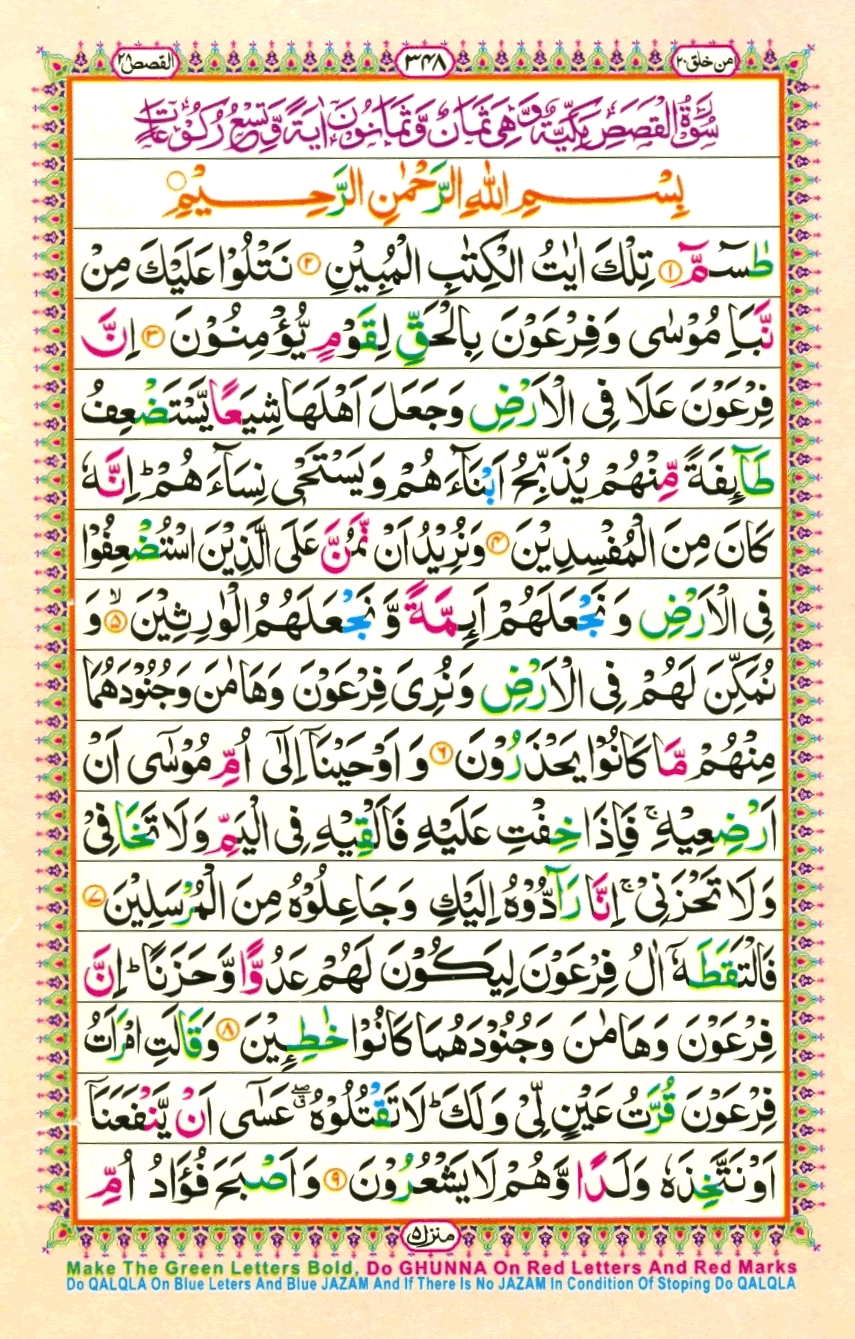 القصص ٢٨
٣٤٨
من خلق ٢٠
سُوْرَةُ الْقَصَصِ مَكِّيَّةٌ وَّهِيَ ثَمَانٌ وَّثَمَانُوْنَ اٰيَةً وَّتِسْعُ رُكُوْعَاتٍ
بِسْمِ اللّٰهِ الرَّحْمٰنِ الرَّحِيْمِ
طٰسٓمّٓ ۝١ تِلْكَ اٰيٰتُ الْكِتٰبِ الْمُبِيْنِ ۝٢ نَتْلُوْا عَلَيْكَ مِنْ
نَّبَاِ مُوْسٰى وَفِرْعَوْنَ بِالْحَقِّ لِقَوْمٍ يُّؤْمِنُوْنَ ۝٣ اِنَّ
فِرْعَوْنَ عَلَا فِى الْاَرْضِ وَجَعَلَ اَهْلَهَا شِيَعًا يَّسْتَضْعِفُ
طَآئِفَةً مِّنْهُمْ يُذَبِّحُ اَبْنَآءَهُمْ وَيَسْتَحْىٖ نِسَآءَهُمْ ؕ اِنَّهٗ
كَانَ مِنَ الْمُفْسِدِيْنَ ۝٤ وَنُرِيْدُ اَنْ نَّمُنَّ عَلَى الَّذِيْنَ اسْتُضْعِفُوْا
فِى الْاَرْضِ وَنَجْعَلَهُمْ اَئِمَّةً وَّنَجْعَلَهُمُ الْوٰرِثِيْنَ ۝٥ ۙ وَ
نُمَكِّنَ لَهُمْ فِى الْاَرْضِ وَنُرِىَ فِرْعَوْنَ وَهَامٰنَ وَجُنُوْدَهُمَا
مِنْهُمْ مَّا كَانُوْا يَحْذَرُوْنَ ۝٦ وَاَوْحَيْنَآ اِلٰٓى اُمِّ مُوْسٰٓى اَنْ
اَرْضِعِيْهِ ۚ فَاِذَا خِفْتِ عَلَيْهِ فَاَلْقِيْهِ فِى الْيَمِّ وَلَا تَخَافِىْ
وَلَا تَحْزَنِىْ ۚ اِنَّا رَآدُّوْهُ اِلَيْكِ وَجَاعِلُوْهُ مِنَ الْمُرْسَلِيْنَ ۝٧
فَالْتَقَطَهٗٓ اٰلُ فِرْعَوْنَ لِيَكُوْنَ لَهُمْ عَدُوًّا وَّحَزَنًا ؕ اِنَّ
فِرْعَوْنَ وَهَامٰنَ وَجُنُوْدَهُمَا كَانُوْا خٰطِئِيْنَ ۝٨ وَقَالَتِ امْرَاَتُ
فِرْعَوْنَ قُرَّتُ عَيْنٍ لِّىْ وَلَكَ ؕ لَا تَقْتُلُوْهُ ۖ عَسٰٓى اَنْ يَّنْفَعَنَآ
اَوْ نَتَّخِذَهٗ وَلَدًا وَّهُمْ لَا يَشْعُرُوْنَ ۝٩ وَاَصْبَحَ فُؤَادُ اُمِّ
منزل ٥
Make The Green Letters Bold, Do GHUNNA On Red Letters And Red Marks
Do QALQLA On Blue Leters And Blue JAZAM And If There Is No JAZAM In Condition Of Stoping Do QALQLA